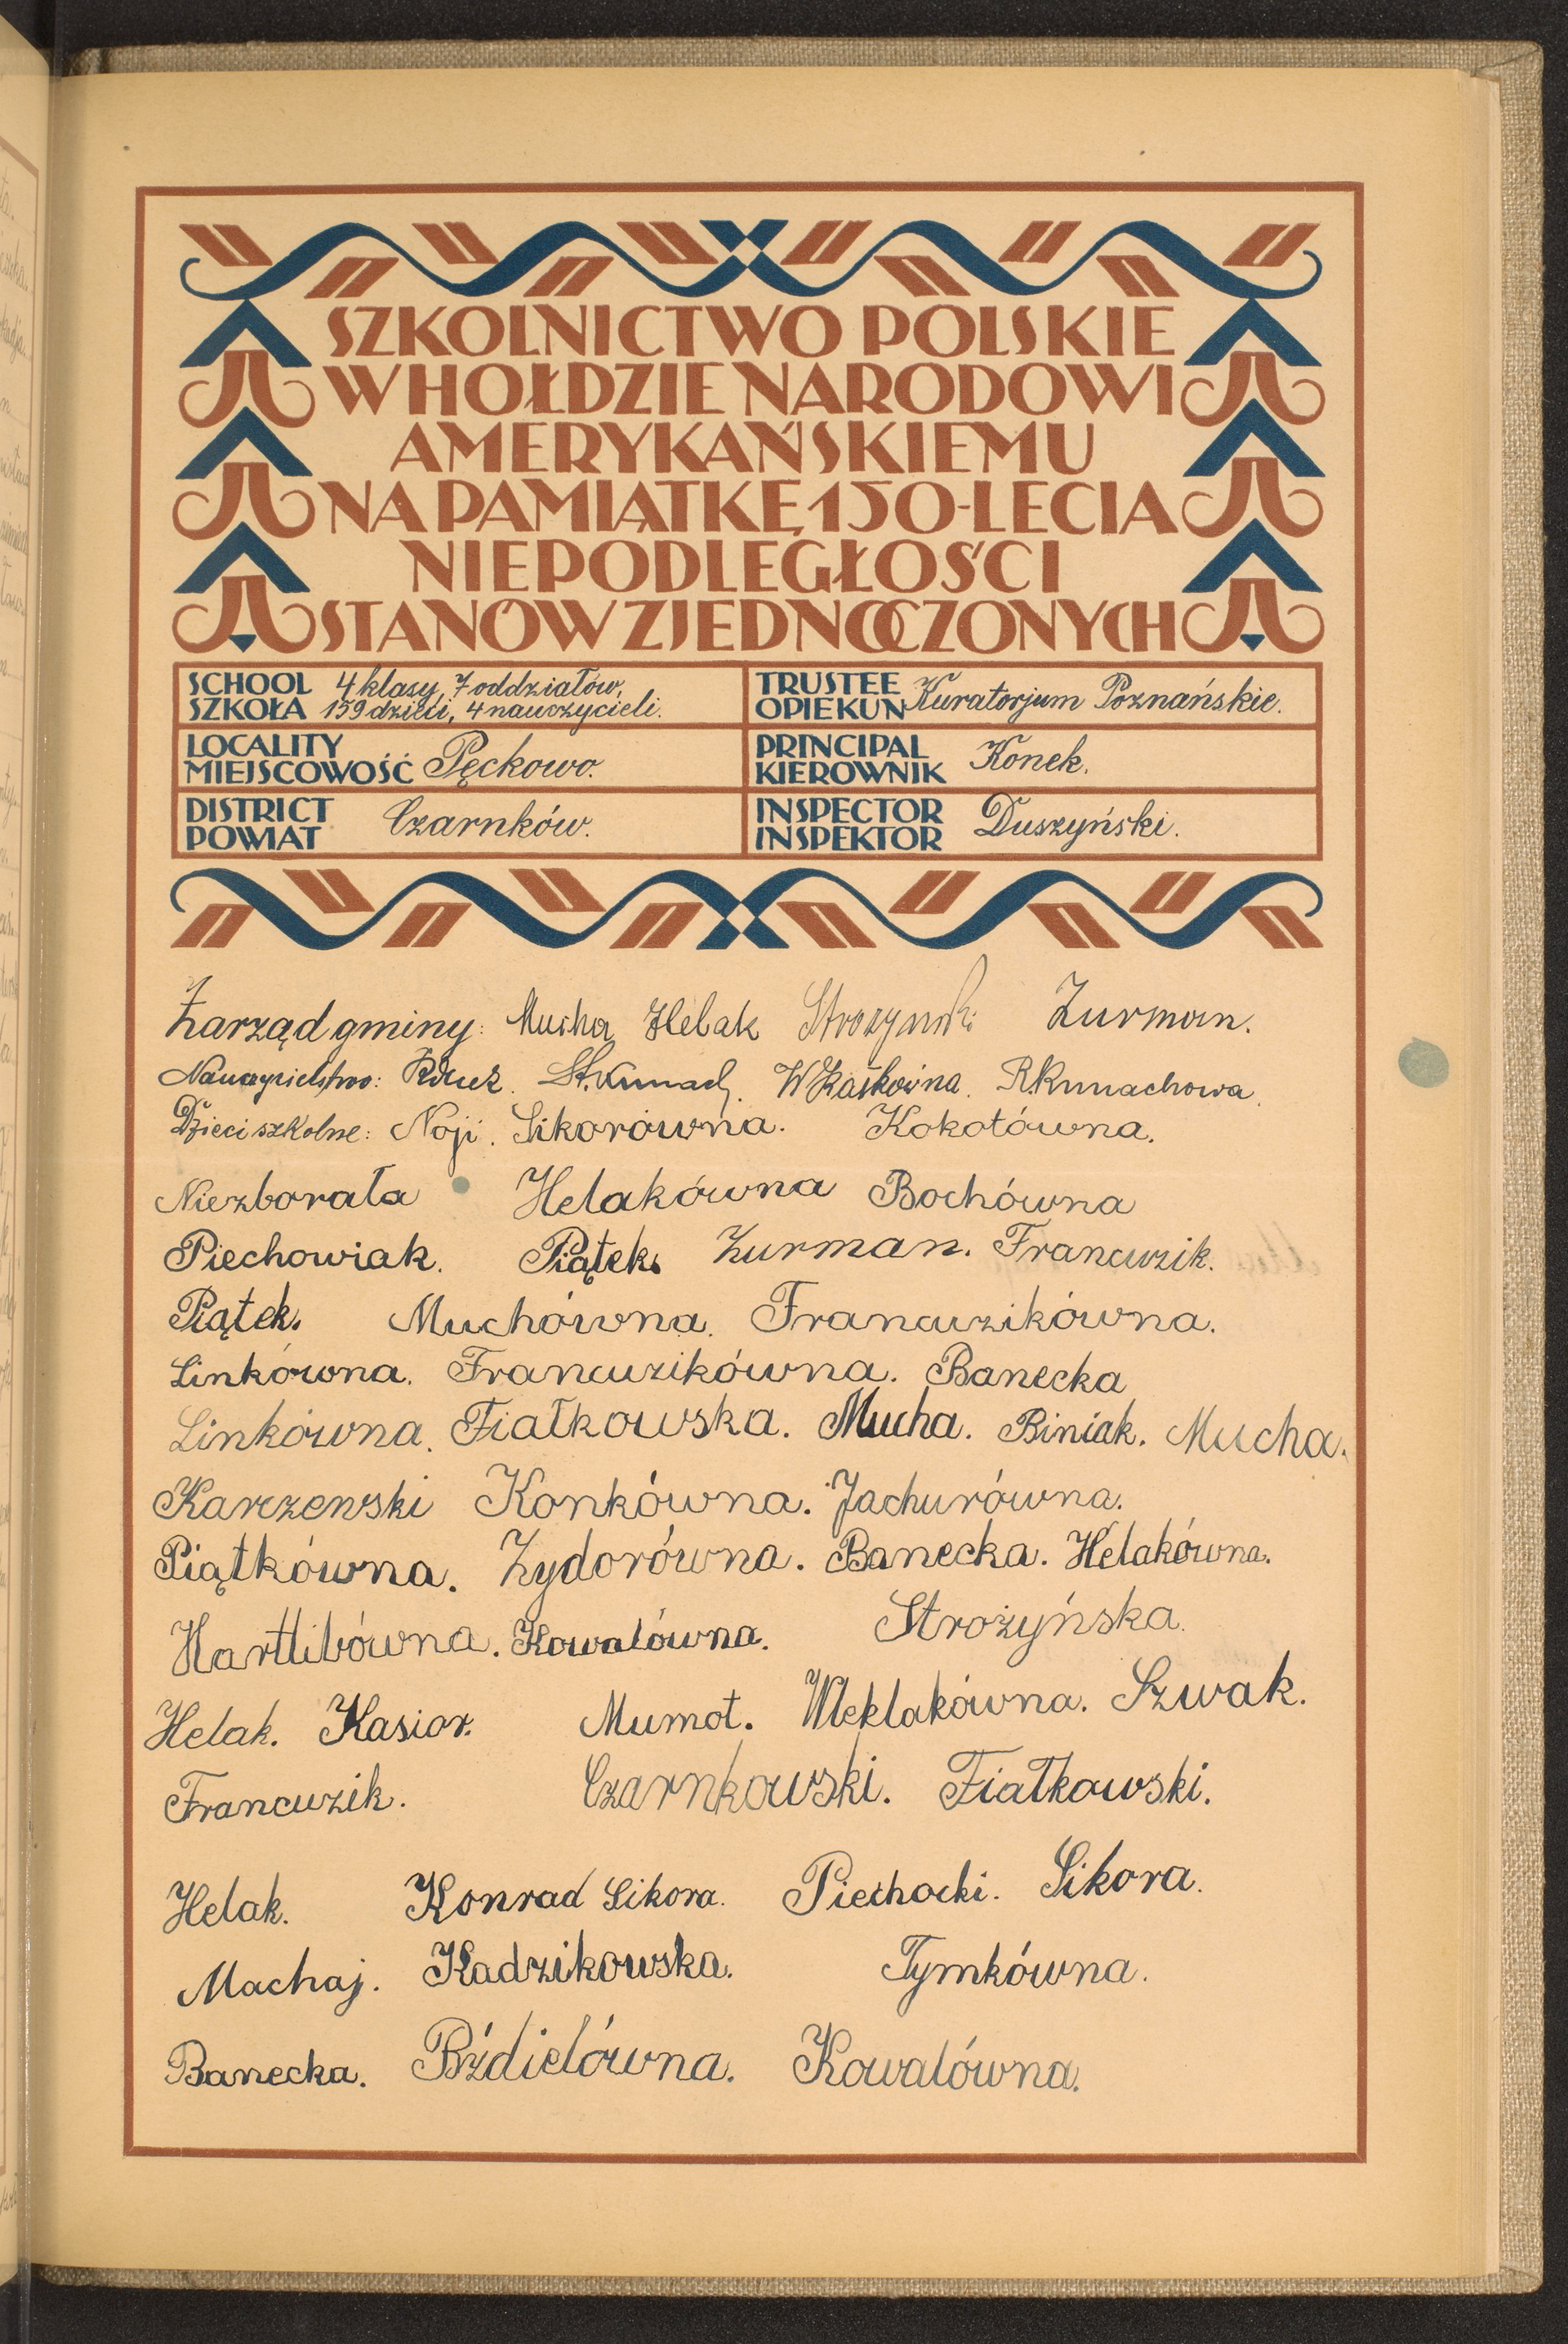 SZKOLNICTWO POLSKIE
W HOŁDZIE NARODOWI
AMERYKAŃSKIEMU
NA PAMIĄTKĘ 150-LECIA
NIEPODLEGŁOŚCI
STANÓW ZJEDNOCZONYCH
SCHOOL SZKOŁA 4 klasy, 7 oddziałów,
159 dzieci, 4 nauczycieli.
TRUSTEE OPIEKUN Kuratorjum Poznańskie.
LOCALITY MIEJSCOWOŚĆ Pęckowo.
PRINCIPAL KIEROWNIK Konek.
DISTRICT POWIAT Czarnków.
INSPECTOR INSPEKTOR Duszyński.
Zarząd gminy: Mucha Helak Strozynski Zurman.
Nauczycielstwo: St. Kunach. R. Kunachowa.
Dzieci szkolne: Noji. Sikorówna. Kokotówna.
Niezborała Helakówna Bochówna
Piechowiak. Piątek. Zurman. Francuzik.
Piątek. Muchówna. Francuzikówna.
Linkówna. Francuzikówna. Banecka
Linkówna. Fiałkowska. Mucha. Biniak. Mucha.
Karczewski Konkówna. Jachurówna.
Piątkówna. Zydorówna. Banecka. Helakówna.
Hartlibówna. Kowalówna. Strożyńska.
Helak. Kasior. Mumot. Wleklakówna. Szwak.
Francuzik. Czarnkowski. Fiałkowski.
Helak. Konrad Sikora. Piechocki. Sikora.
Machaj. Kadzikowska. Tymkówna.
Banecka. Bździelówna. Kowalówna.